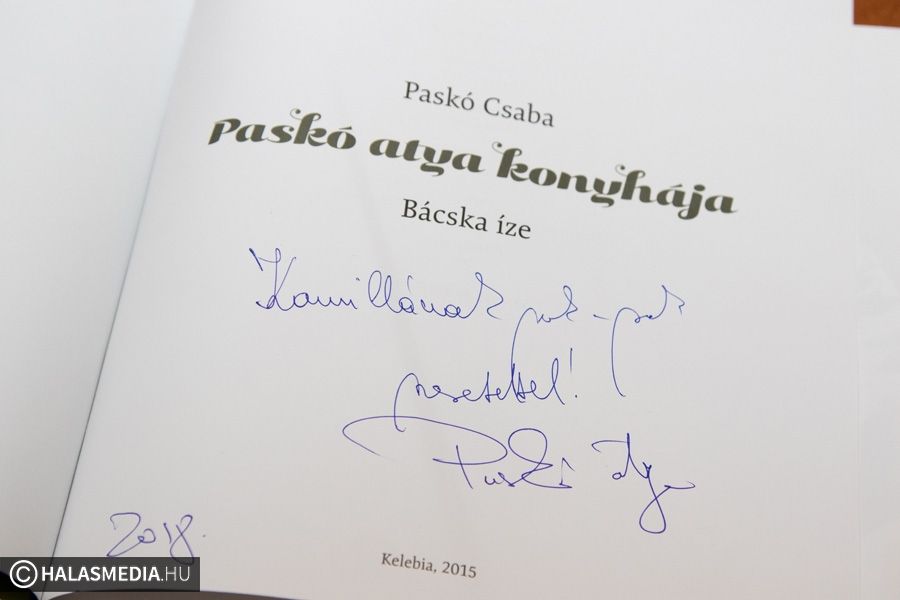 Paskó Csaba
paskó atya konyhája
Bácska íze
Kamillának sok-sok
szeretettel!
Paskó Atya
2018.
Kelebia, 2015
© HALASMEDIA.HU